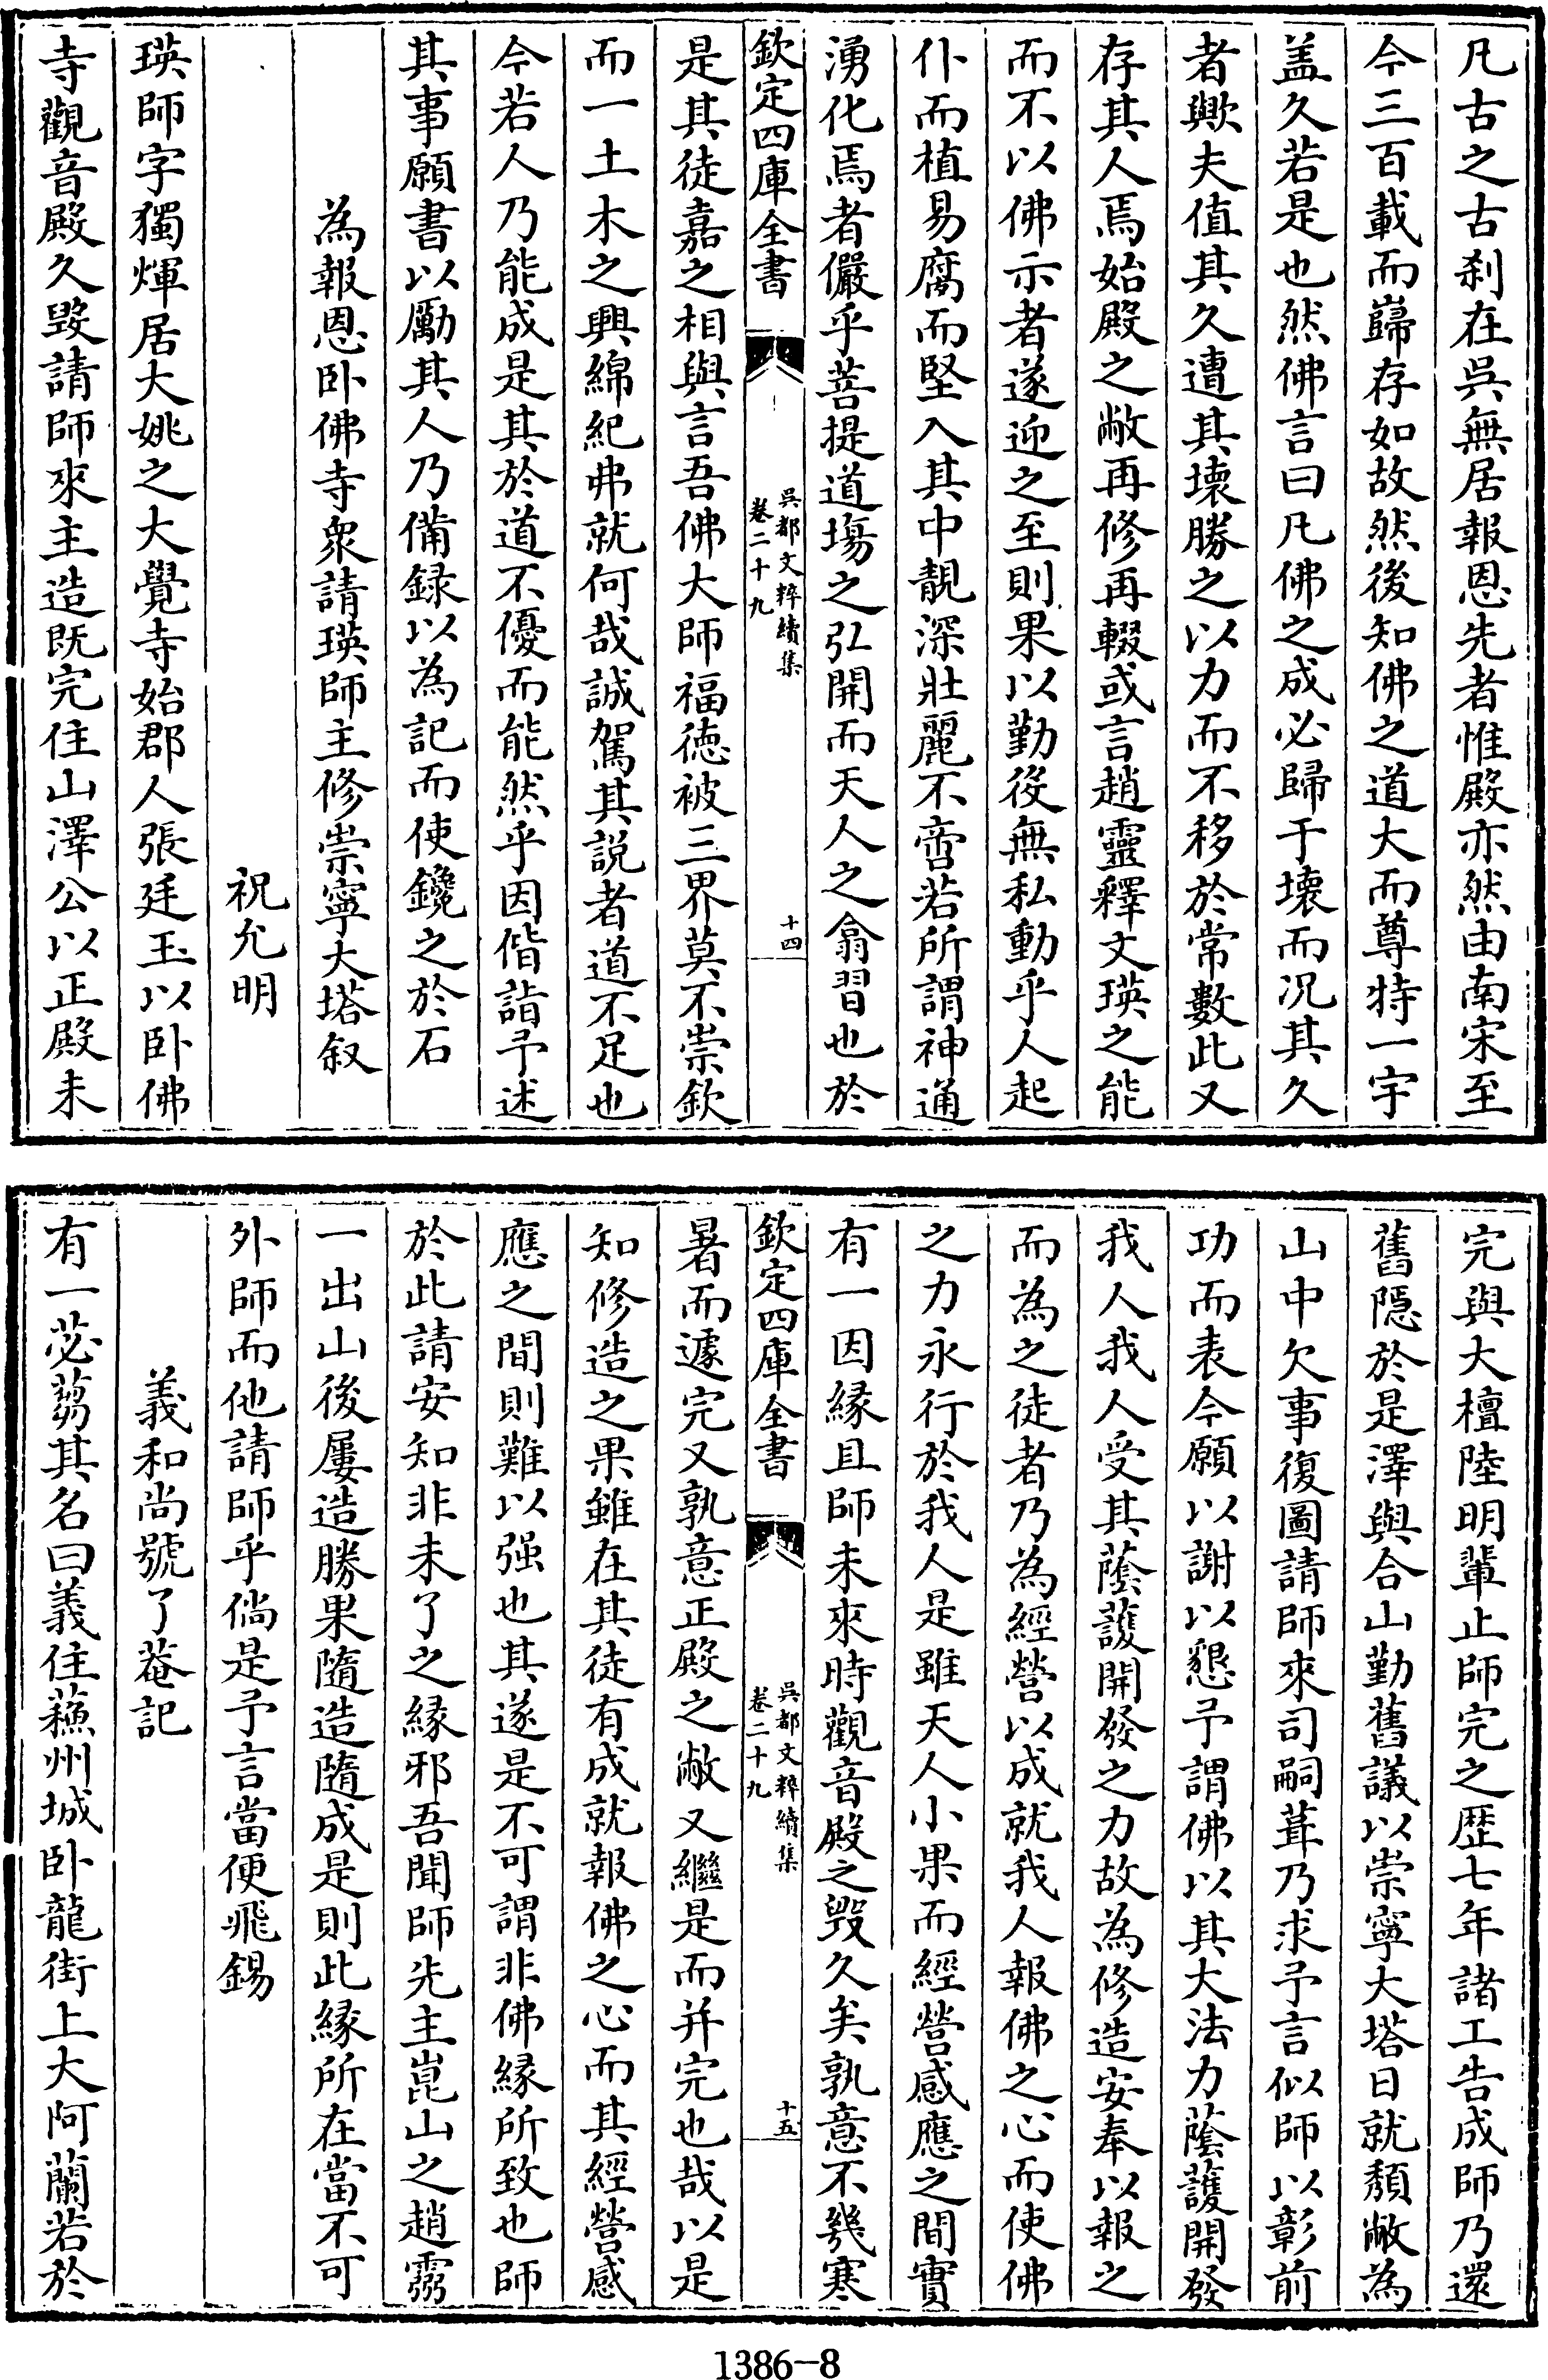 凡古之古刹在吳無居報恩先者惟殿亦然由南宋至
今三百載而巋存如故然後知佛之道大而尊特一宇
盖久若是也然佛言曰凡佛之成必歸于壊而况其久
者歟夫值其久遭其壊勝之以力而不移於常數此又
存其人焉始殿之敝再修再輟或言趙靈釋文瑛之能
而不以佛示者遂迎之至則果以勤後無私動乎人起
仆而植易腐而堅入其中靚深壯麗不啻若所謂神通
湧化焉者儼乎菩提道塲之弘開而天人之翕習也於
欽定四庫全書
吳都文粹續集
卷二十九
十四
是其徒嘉之相與言吾佛大師福徳被三界莫不崇欽
而一土木之興綿紀弗就何哉誠駕其説者道不足也
今若人乃能成是其於道不優而能然乎因偕詣予述
其事願書以勵其人乃備録以為記而使鑱之於石
為報恩卧佛寺衆請瑛師主修崇寧大塔叙
祝允明
瑛師字獨煇居大姚之大覺寺始郡人張廷玉以卧佛
寺觀音殿久毀請師來主造既完住山澤公以正殿未
完與大檀陸明輩止師完之歴七年諸工告成師乃還
舊隠於是澤與合山勤舊議以崇寧大塔日就頽敝為
山中欠事復圖請師來司嗣葺乃求予言似師以彰前
功而表今願以謝以懇予謂佛以其大法力蔭護開發
我人我人受其蔭護開發之力故為修造安奉以報之
而為之徒者乃為經營以成就我人報佛之心而使佛
之力永行於我人是雖天人小果而經營感應之間實
有一因縁且師未來時觀音殿之毀久矣孰意不幾寒
欽定四庫全書
吳都文粹續集
卷二十九
十五
暑而遽完又孰意正殿之敝又繼是而并完也哉以是
知修造之果雖在其徒有成就報佛之心而其經營感
應之間則難以强也其遂是不可謂非佛縁所致也師
於此請安知非未了之縁邪吾聞師先主崑山之趙靈
一出山後屢造勝果隨造隨成是則此縁所在當不可
外師而他請師乎倘是予言當便飛錫
義和尚號了菴記
有一苾蒭其名曰義住蘓州城卧龍街上大阿蘭若於
1386-8